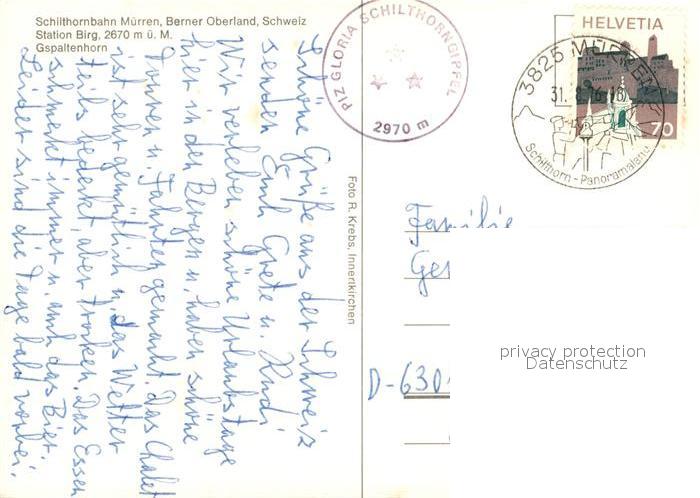 Schilthornbahn Mürren, Berner Oberland, Schweiz
Station Birg, 2670 m ü. M.
Gspaltenhorn
PIZ GLORIA SCHILTHORNGIPFEL
2970 m
HELVETIA
70
3825 MÜRREN
31. 8. 76 - 18
Schilthorn - Panoramaland
Schöne Grüße aus der Schweiz
senden Euch Grete u. Rudi
Wir verleben schöne Urlaubstage
hier in den Bergen u. haben schöne
Touren u. Fahrten gemacht. Das Chalet
ist sehr gemütlich u. das Wetter
teils bedeckt, aber trocken. Das Essen
schmeckt immer u. auch das Bier.
Leider sind die Tage bald vorbei.
Foto R. Krebs, Innertkirchen
Familie
Ger
D-630
privacy protection
Datenschutz